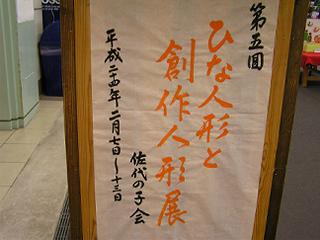 第五回
ひな人形と
創作人形展
平成二十四年二月七日〜十三日
佐代の子会